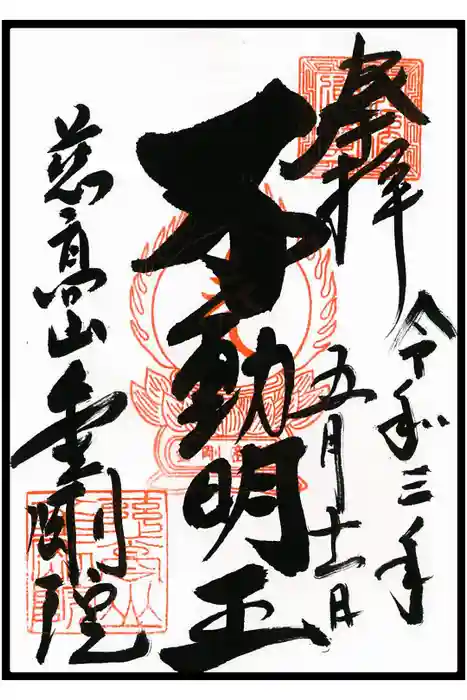 奉拝
令和三年
五月十一日
不動明王
慈高山金剛院